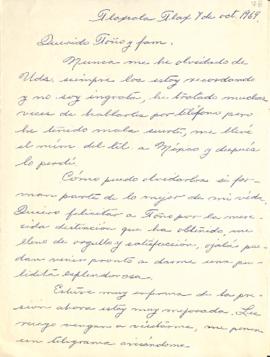 Tlaxcala Tlax 7 de oct. 1969.
Querido Toño y fam.
Nunca me he olvidado de
Uds. siempre los estoy recordando
y no soy ingrata, he tratado muchas
veces de hablarles por teléfono pero
he tenido mala suerte, me llevé
el núm del tel. a México y después
lo perdí.
Cómo puedo olvidarlos si for-
man parte de lo mejor de mi vida.
Quiero felicitar a Toño por la mere-
cida distinción que ha obtenido, me
lleno de orgullo y satisfacción, ojalá pue-
dan venir pronto a darme una pu-
blidita esplendorosa.
Estuve muy enferma de la pre-
sión ahora estoy muy mejorada. Les
ruego vengan a visitarme, me ponen
un telegrama avisándome